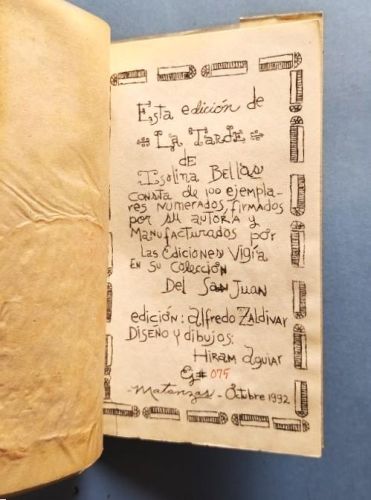 Esta edición de
La Tarde
DE
Isolina Bellas
CONSTA de 100 ejempla-
res numerados, firmados
por su autora y
Manufacturados por
Las Ediciones Vigía
EN su Colección
Del San Juan
edición: Alfredo Zaldivar
Diseño y dibujos:
Hiram Aguiar
Ej# 075
-Matanzas - Octubre 1992